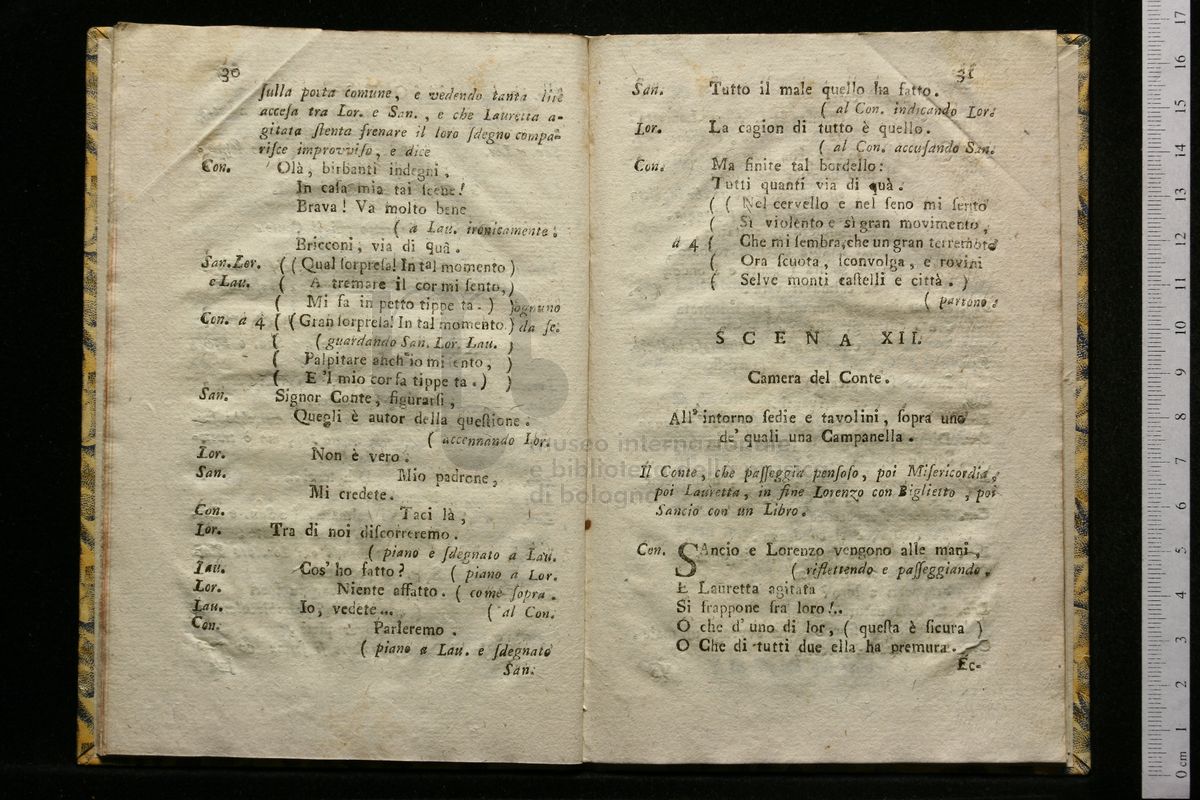 30
ſulla porta comune, e vedendo tanta lite
acceſa tra Lor. e San., e che Lauretta a-
gitata ſtenta frenare il loro ſdegno compa-
riſce improvviſo, e dice
Con. Olà, birbanti indegni,
In caſa mia tai ſcene!
Brava! Va molto bene
( a Lau. ironicamente.
Bricconi, via di quà.
San. Lor. ( ( Qual ſorpreſa! In tal momento )
e Lau. ( A tremare il cor mi ſento, )
( Mi fa in petto tippe ta. ) )ognuno
Con. a 4 ( ( Gran ſorpreſa! In tal momento ) da ſe.
( ( guardando San. Lor. Lau. )
( Palpitare anch'io mi ſento, )
( E 'l mio cor fa tippe ta. ) )
San. Signor Conte, figurarſi,
Quegli è autor della queſtione.
( accennando Lor.
Lor. Non è vero.
San. Mio padrone,
Mi credete.
Con. Taci là,
Lor. Tra di noi diſcorreremo.
( piano e ſdegnato a Lau.
Lau. Cos' ho fatto? ( piano a Lor.
Lor. Niente affatto. ( come ſopra.
Lau. Io, vedete... ( al Con.
Con. Parleremo.
( piano a Lau. e ſdegnato
San.
31
San. Tutto il male quello ha fatto.
( al Con. indicando Lor.
Lor. La cagion di tutto è quello.
( al Con. accuſando San.
Con. Ma finite tal bordello:
Tutti quanti via di quà.
( ( Nel cervello e nel ſeno mi ſento
( Sì violento e sì gran movimento,
a 4 ( Che mi ſembra, che un gran terremoto
( Ora ſcuota, ſconvolga, e rovini
( Selve monti caſtelli e città. )
( partono.
SCENA XII.
Camera del Conte.
All' intorno ſedie e tavolini, ſopra uno
de' quali una Campanella.
Il Conte, che paſſeggia penſoſo, poi Miſericordia,
poi Lauretta, in fine Lorenzo con Biglietto, poi
Sancio con un Libro.
Con. SAncio e Lorenzo vengono alle mani,
( riflettendo e paſſeggiando.
E Lauretta agitata
Si frappone fra loro!..
O che d' uno di lor, ( queſta è ſicura )
O Che di tutti due ella ha premura.
Ec-
museo internazionale
e biblioteca della
di bologna
0 cm 1 2 3 4 5 6 7 8 9 10 11 12 13 14 15 16 17